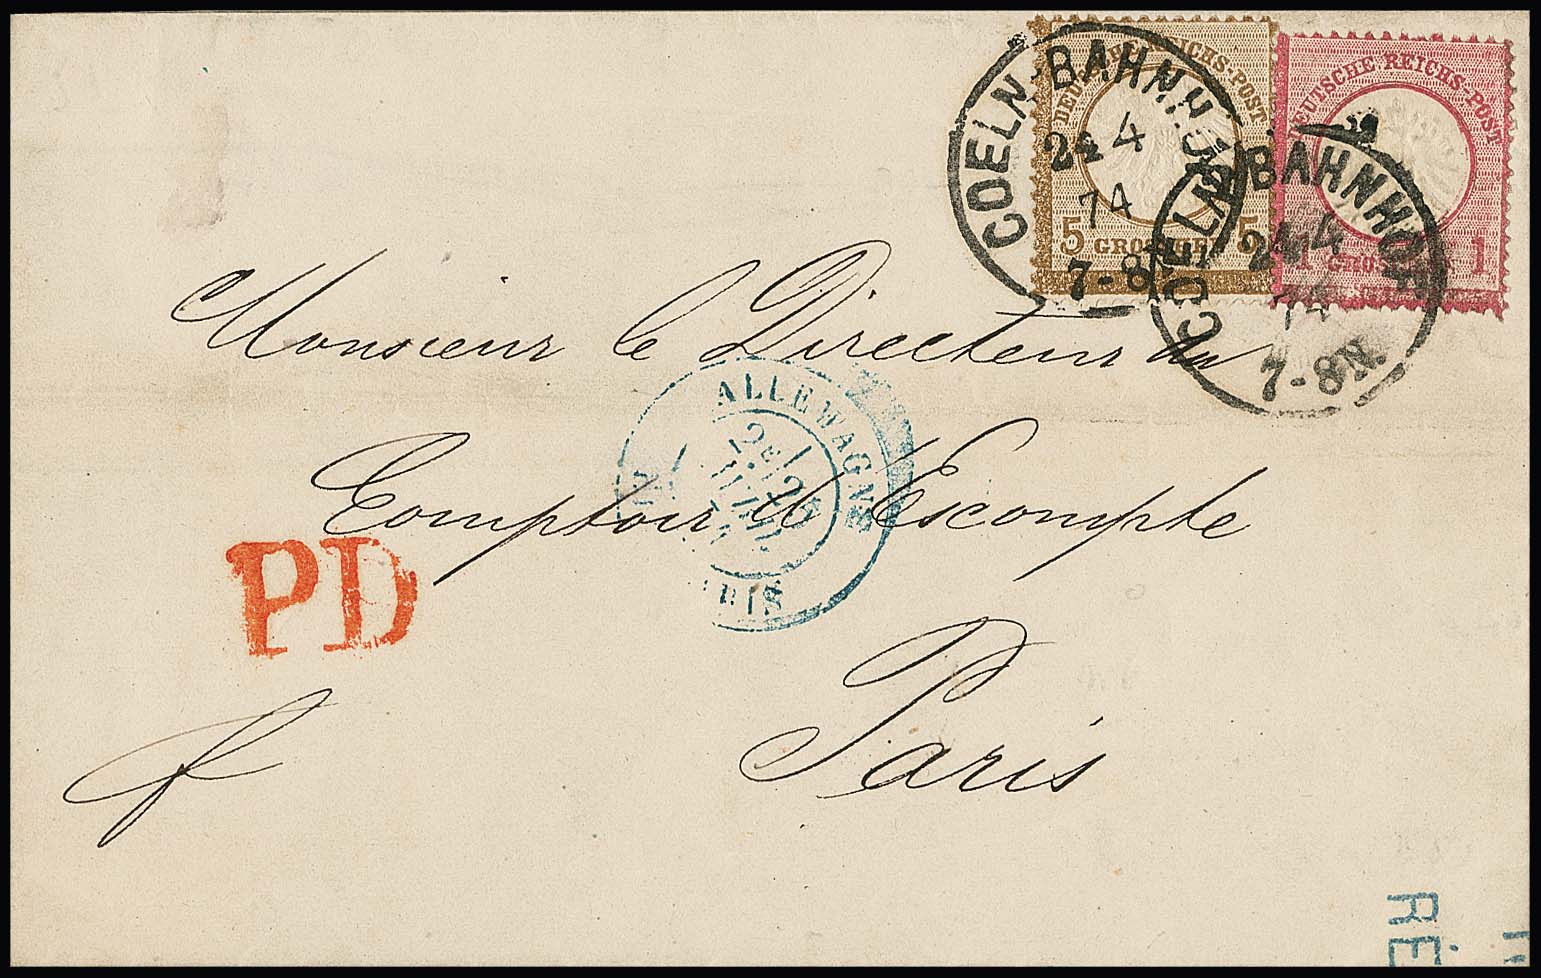 DEUTSCHE REICHS-POST
5 GROSCHEN 5
DEUTSCHE REICHS-POST
1 GROSCHEN 1
COELN BAHNHOF
24 4
74
7-8
COELN BAHNHOF
24 4
74
7-8N.
Monsieur le Directeur du
Comptoir d'Escompte
Paris
ALLEMAGNE
PARIS
PD
RÉ